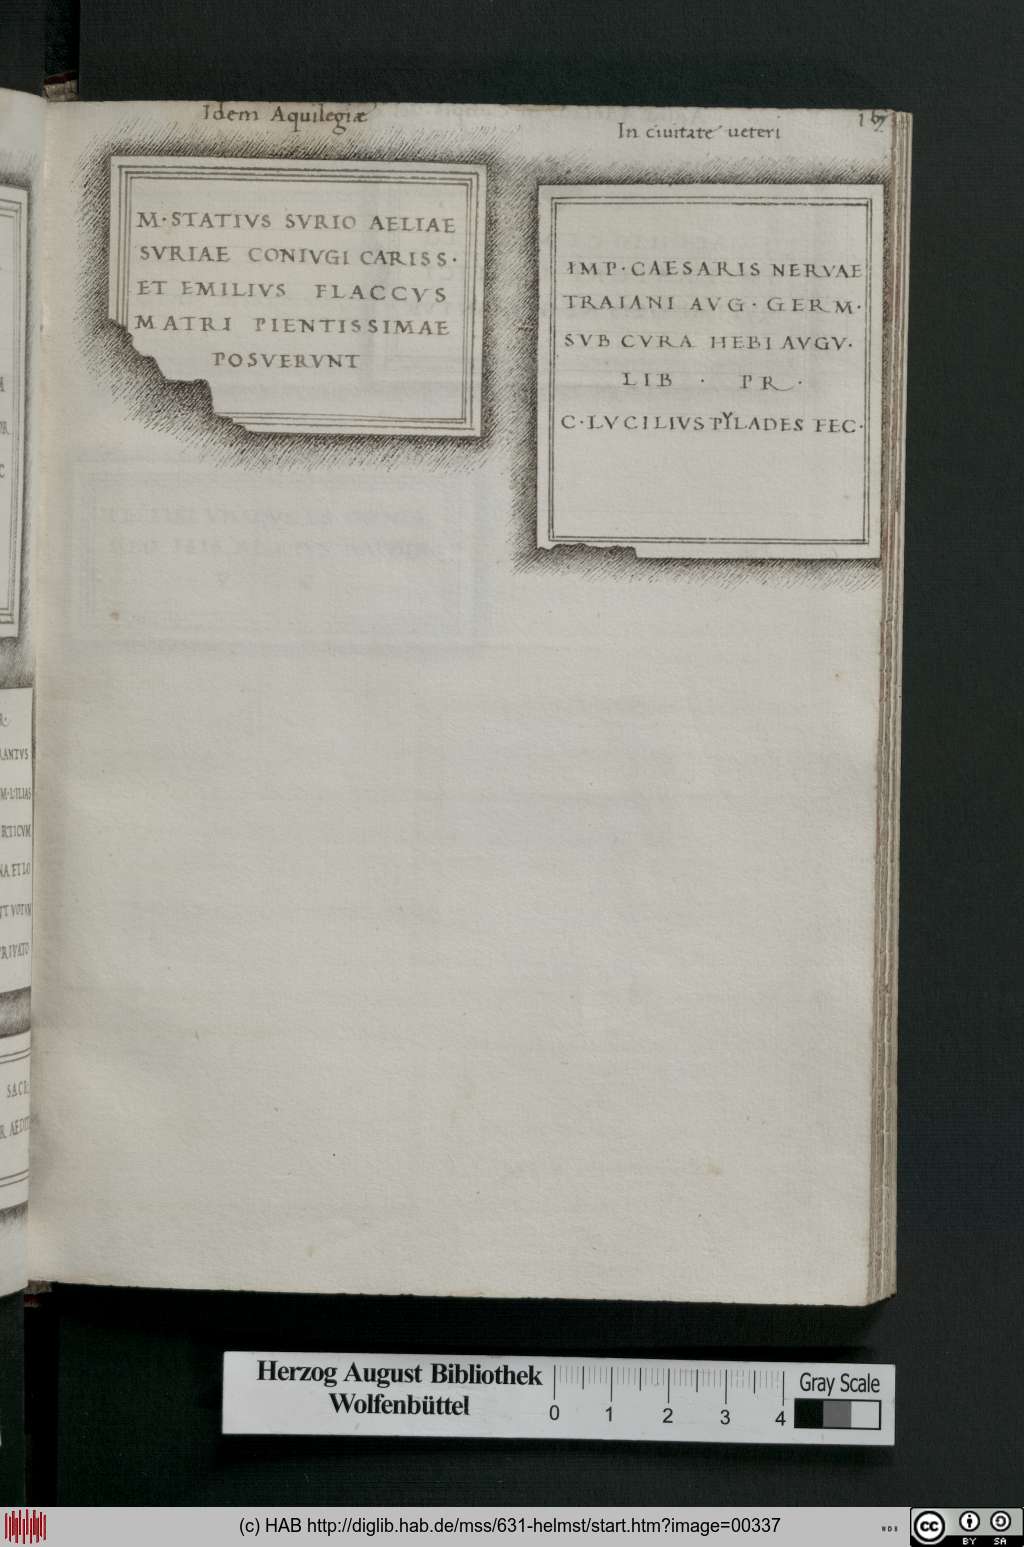 Idem Aquilegiæ
M·STATIVS SVRIO AELIAE
SVRIAE CONIVGI CARISS·
ET EMILIVS FLACCVS
MATRI PIENTISSIMAE
POSVERVNT
In ciuitate ueteri
IMP·CAESARIS NERVAE
TRAIANI AVG·GERM·
SVB CVRA HEBI AVGV·
LIB · PR·
C·LVCILIVS PYLADES FEC·
RANTVS
M·L·ILIAS
RTICVM
NA ET LO
VOTVM
PRIVATO
SACR·
Herzog August Bibliothek
Wolfenbüttel
0 1 2 3 4
Gray Scale
(c) HAB http://diglib.hab.de/mss/631-helmst/start.htm?image=00337
WDB
cc BY SA